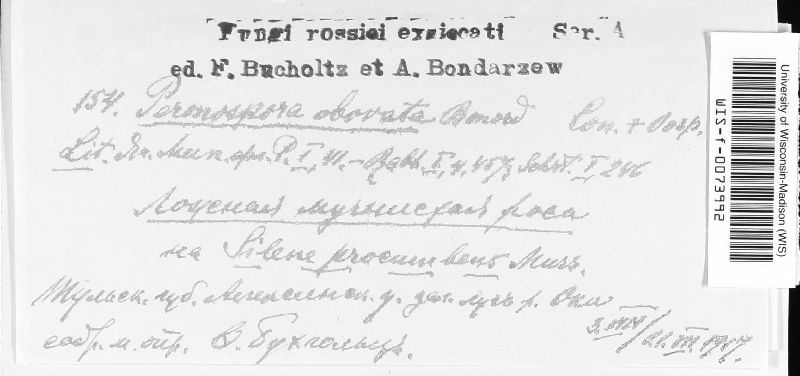 Fungi rossici exsiccati Ser. A
ed. F. Bucholtz et A. Bondarzew
154. Peronospora obovata Bonord Con. + Oosp.
Lit. Яч. Мик. P. I, - Rabh. I, 4, 457, Schröt. I, 246
Ложная мучнистая роса
на Silene procumbens Murr.
Тульск. губ. Алексинск. у. зал. лугъ р. Оки
собр. и опр. Ѳ. Бухгольцъ. 3. VIII / 21. VII. 1917.
University of Wisconsin-Madison (WIS)
WIS-f-0073992